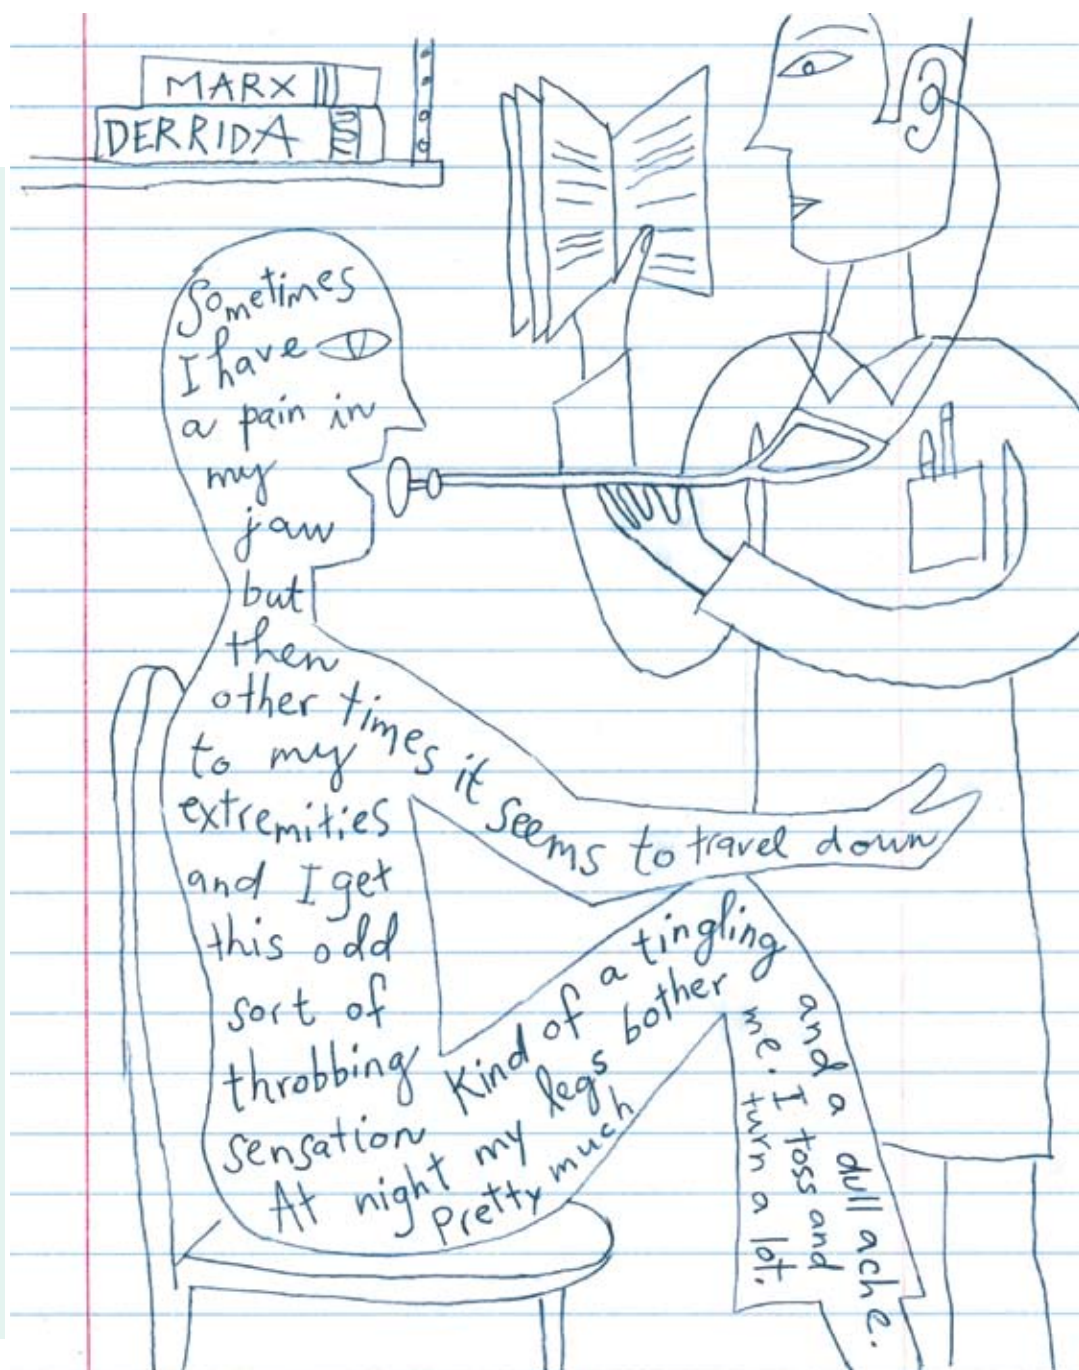 MARX
DERRIDA
Sometimes
I have
a pain in
my
jaw
but
then
other times it seems to travel down
to my
extremities
and I get
this odd
sort of
throbbing
sensation kind of a tingling and a dull ache.
At night my legs bother me. I toss and
Pretty much turn a lot.